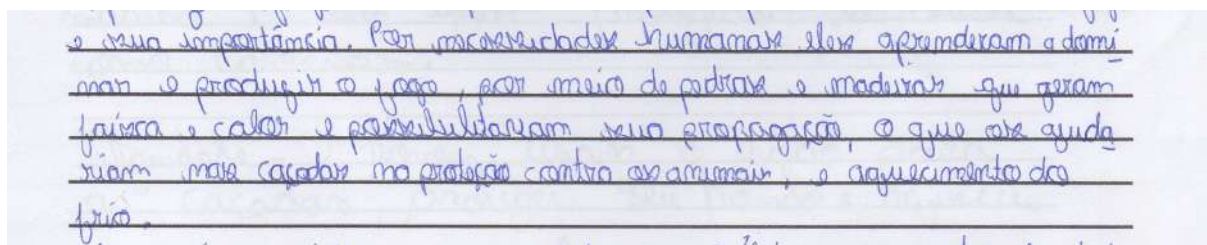 e sua importância. Por necessidades humanas eles aprenderam a domi
nar e produzir o fogo, por meio de pedras e madeiras que geram
faísca e calor e possibilitariam sua propagação, o que os ajuda
riam nas caçadas na proteção contra os animais, e aquecimento do
frio.